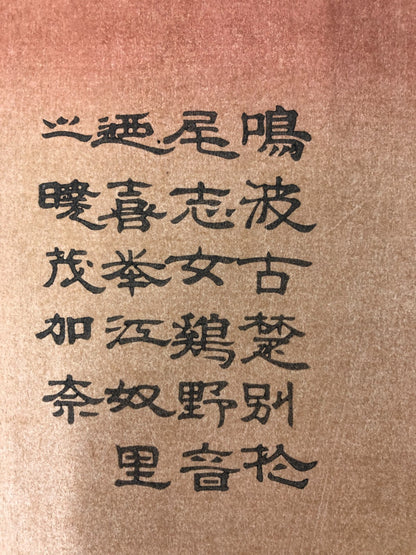 鳴波古楚別於
尾志女鶏野音
迺喜挙江奴里
之暁茂加奈